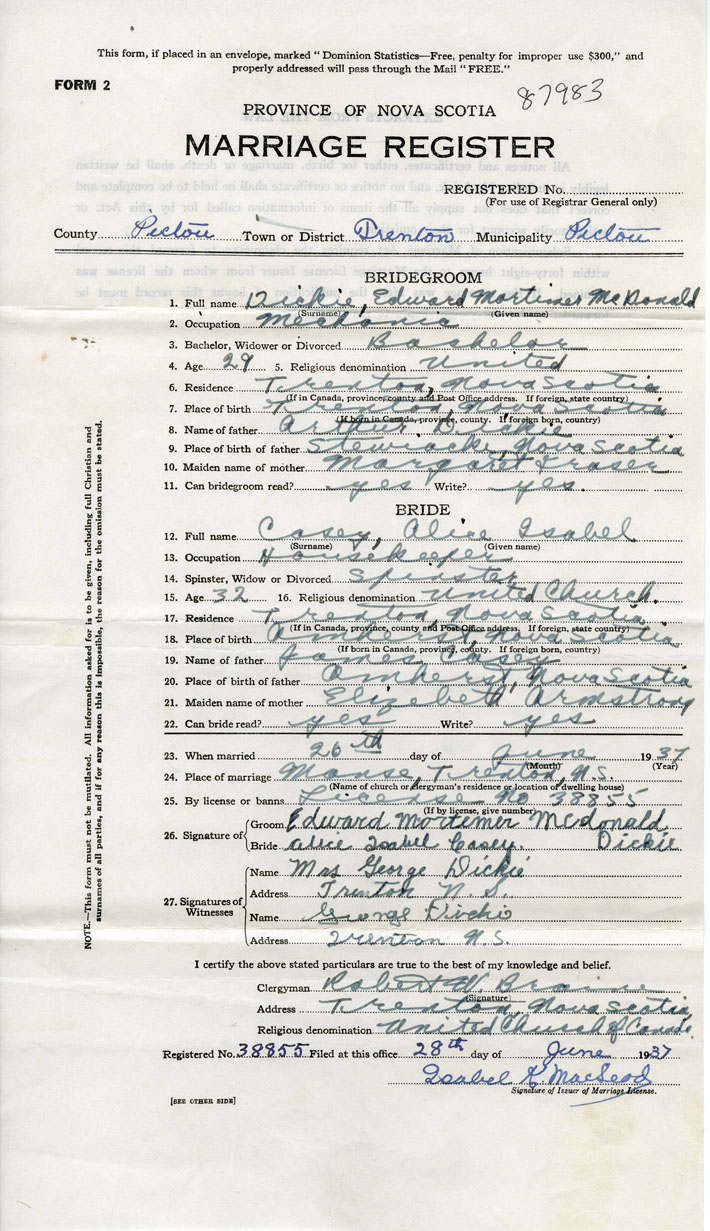 This form, if placed in an envelope, marked "Dominion Statistics—Free, penalty for improper use $300," and
properly addressed will pass through the Mail "FREE."
FORM 2
87983
PROVINCE OF NOVA SCOTIA
MARRIAGE REGISTER
REGISTERED No.
(For use of Registrar General only)
County Pictou Town or District Trenton Municipality Pictou
BRIDEGROOM
1. Full name Dickie, Edward Mortimer McDonald
(Surname) (Given name)
2. Occupation Mechanic
3. Bachelor, Widower or Divorced Bachelor
4. Age 29 5. Religious denomination United
6. Residence Trenton, Nova Scotia
(If in Canada, province, county and Post Office address. If foreign, state country)
7. Place of birth Trenton, Nova Scotia
(If born in Canada, province, county. If foreign born, country)
8. Name of father Arthur Dickie
9. Place of birth of father Stewiacke, Nova Scotia
10. Maiden name of mother Margaret Fraser
11. Can bridegroom read? yes Write? yes.
BRIDE
12. Full name Casey, Alice Isabel
(Surname) (Given name)
13. Occupation Housekeeper
14. Spinster, Widow or Divorced Spinster
15. Age 32 16. Religious denomination United Church.
17. Residence Trenton, Nova Scotia
(If in Canada, province, county and Post Office address. If foreign, state country)
18. Place of birth Amherst, Nova Scotia
(If born in Canada, province, county. If foreign born, country)
19. Name of father James Casey
20. Place of birth of father Amherst, Nova Scotia
21. Maiden name of mother Elizabeth Armstrong
22. Can bride read? yes Write? yes
23. When married 26th day of June 1937
(Month) (Year)
24. Place of marriage Manse, Trenton, N.S.
(Name of church or clergyman's residence or location of dwelling house)
25. By license or banns License No 38855
(If by license, give number)
26. Signature of Groom Edward Mortimer McDonald
Bride Alice Isabel Casey. Dickie
27. Signatures of Witnesses
Name Mrs George Dickie
Address Trenton N.S.
Name George Dickie
Address Trenton N.S.
I certify the above stated particulars are true to the best of my knowledge and belief.
Clergyman Robert W.
(Signature)
Address Trenton, Nova Scotia
Religious denomination United Church of Canada
Registered No. 38855 Filed at this office 28th day of June 1937
Isabel K MacLeod
Signature of Issuer of Marriage License.
[SEE OTHER SIDE]
NOTE.—This form must not be mutilated. All information asked for is to be given, including full Christian and
surnames of all parties, and if for any reason this is impossible, the reason for the omission must be stated.